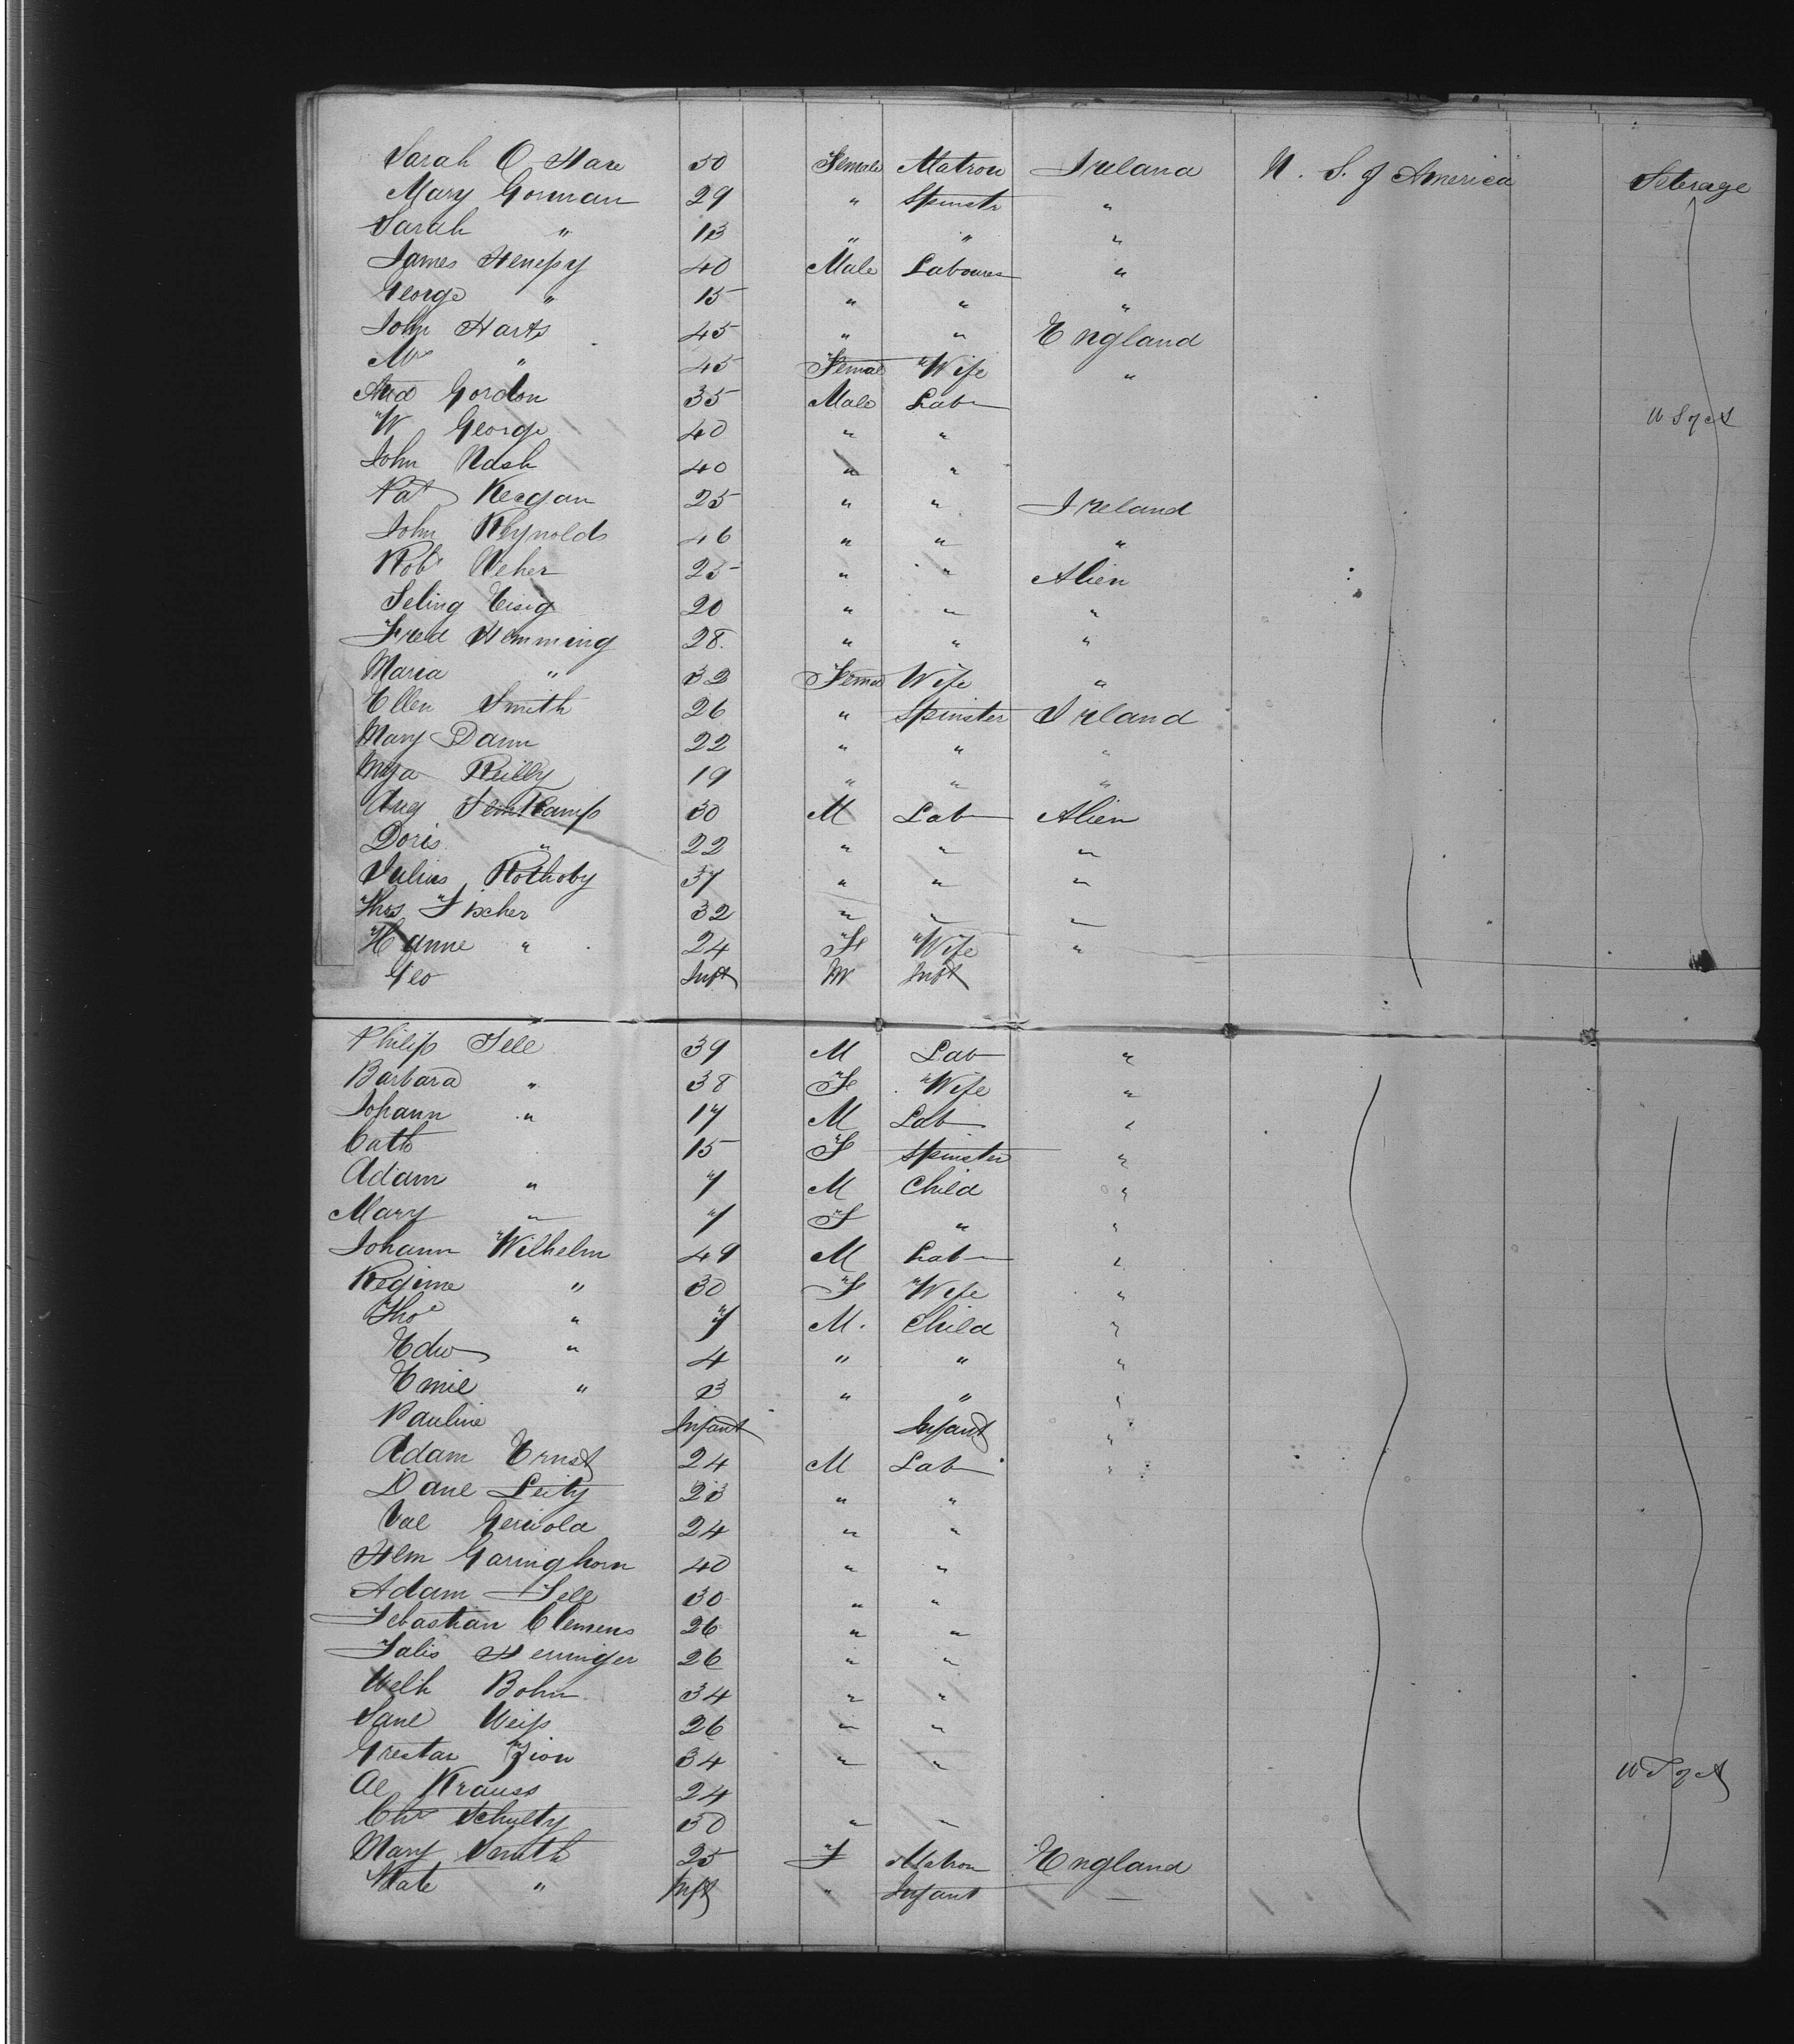 Sarah O Hare 50 Female Matron Ireland U. S. of America Steerage
Mary Gorman 29 " Spinstr "
Sarah " 13 " " "
James Henessy 40 Male Labourer "
George " 15 " " "
John Harts 45 " " England
Mrs " 45 Femal Wife "
And Gordon 35 Male Lab
W George 40 " " U S of A
John Nash 40 " "
Pat Keegan 25 " " Ireland
John Reynolds 46 " " "
Robt Weher 25 " " Alien
Seling Eisig 20 " " "
Fred Hemming 28. " " "
Maria " 32 Femal Wife "
Ellen Smith 26 " Spinster Irland
Mary Dann 22 " " "
Reilly 19 " " "
Aug 30 M Lab Alien
Doris " 22 " " "
Julius Rothoby 37 " " "
Thos Fischer 32 " " "
Hanne " 24 F Wife "
Geo Inft M Inft
Philip Sell 39 M Lab "
Barbara " 38 F Wife "
Johann " 17 M Lab "
Cath 15 F Spinster "
Adam " 7 M Child "
Mary " 7 F " "
Johann Wilhelm 49 M Lab "
Regime " 30 F Wife "
Tho " 7 M. Child "
Edw " 4 " " "
Emil " 3 " " "
Pauline Infant Infant "
Adam Ernst 24 M Lab "
Danl Leity 23 " "
Val Gerwold 24 " "
Hem Garinghorn 40 " "
Adam Sell 30 " "
Sebastian Clemens 26 " "
Salis Herringer 26 " "
Welh Bohn 34 " "
Saml Weiss 26 " "
Grestar Zion 34 " " U S of A
Al Krauss 24
Chr Schulty 30 " "
Mary Smith 25 F Matron England
Kate " Inft " Infant